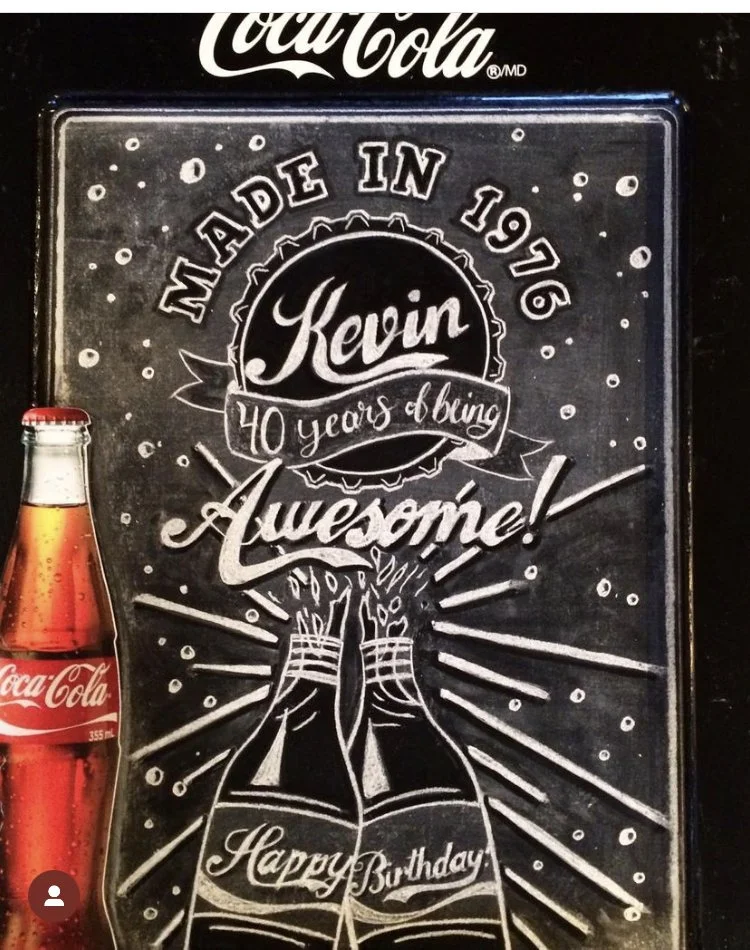 Coca-Cola ®/MD
MADE IN 1976
Kevin
40 years of being
Awesome!
Coca-Cola
355 mL
Happy Birthday!